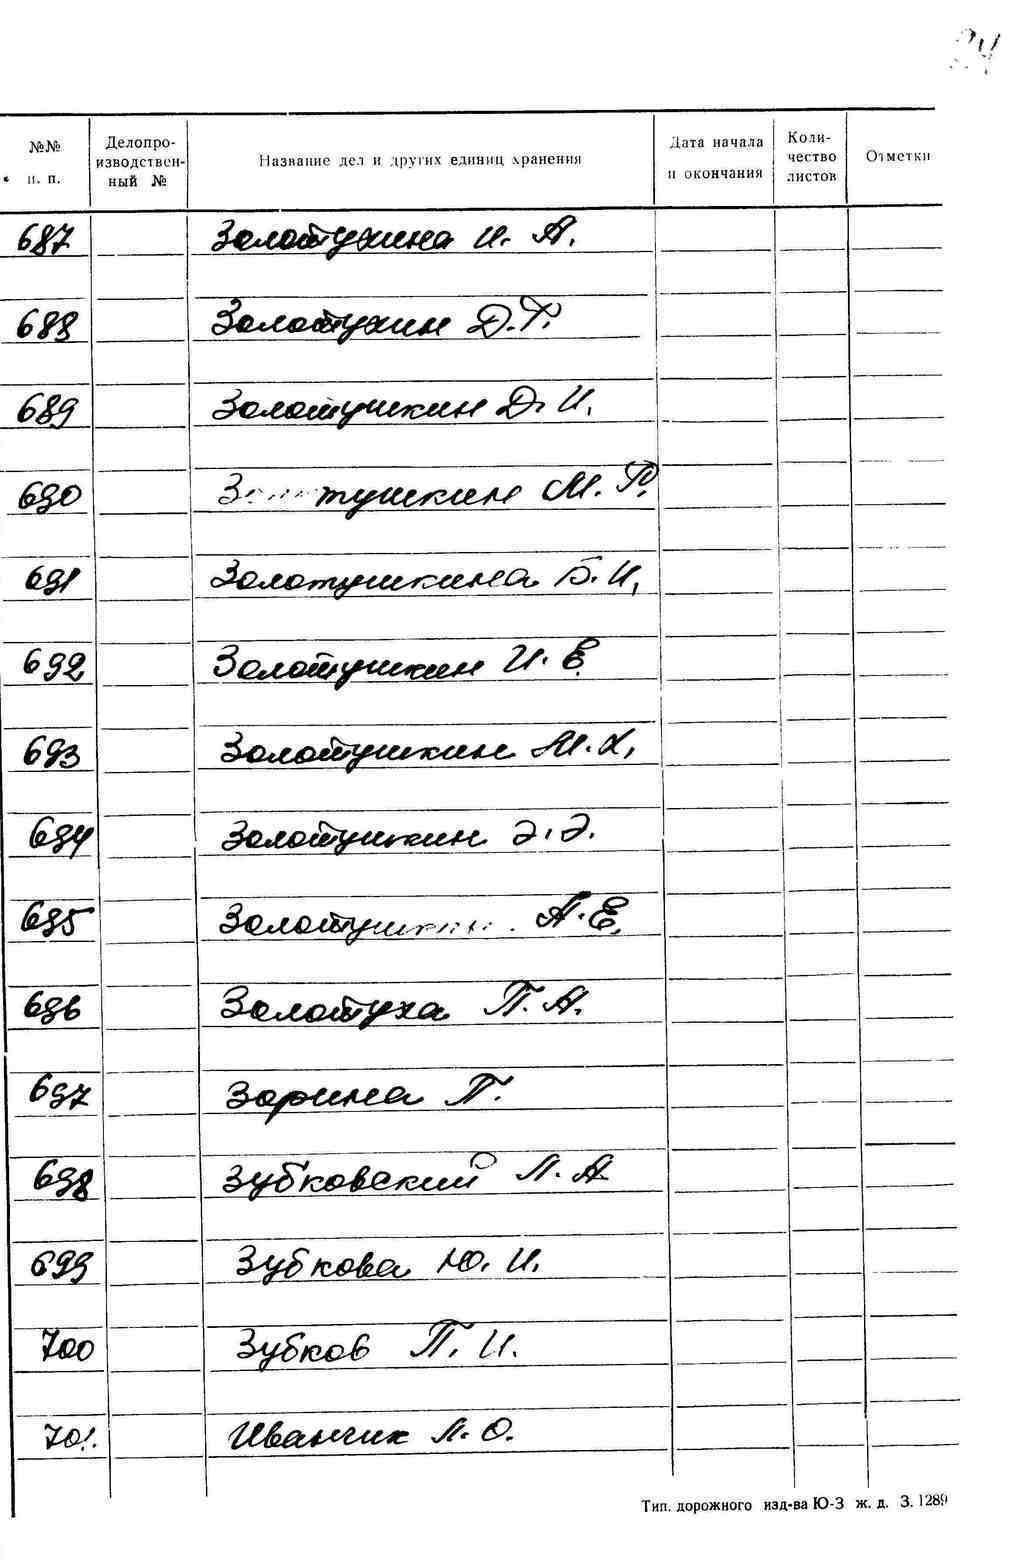 24
№№ п. п. Делопроизводственный № Название дел и других единиц хранения Дата начала и окончания Количество листов Отметки
687 Золотухина И. А.
688 Золотухин Д. Г.
689 Золотушкин Д. И.
690 Золотушкин М. Р.
691 Золотушкина Б. И.
692 Золотушкин И. Е.
693 Золотушкин М. Х.
694 Золотушкин Э. Э.
695 Золотушкин А. Е.
696 Золотуха П. А.
697 Зорина П.
698 Зубковский Л. А.
699 Зубкова Ю. И.
700 Зубков П. И.
701. Иванчик Л. О.
Тип. дорожного изд-ва Ю-З ж. д. З. 1289